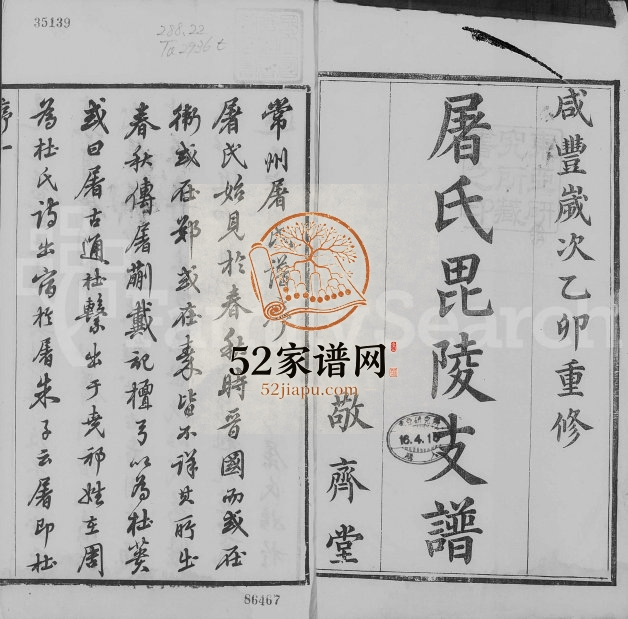 咸豐歲次乙卯重修
屠氏毘陵支譜
敬齊堂
16.4.15
常州屠氏譜序
屠氏始見於春秋時晉國而或在
衛或在鄭或在秦皆不詳其所出
春秋傳屠蒯戴記檀弓以為杜蕢
或曰屠古通杜繫出于堯祁姓在周
為杜氏詩出宿於屠朱子云屠即杜
序一
35139
288.22
Ta 2936 t
86467
52家谱网
52jiapu.com
FamilySearch